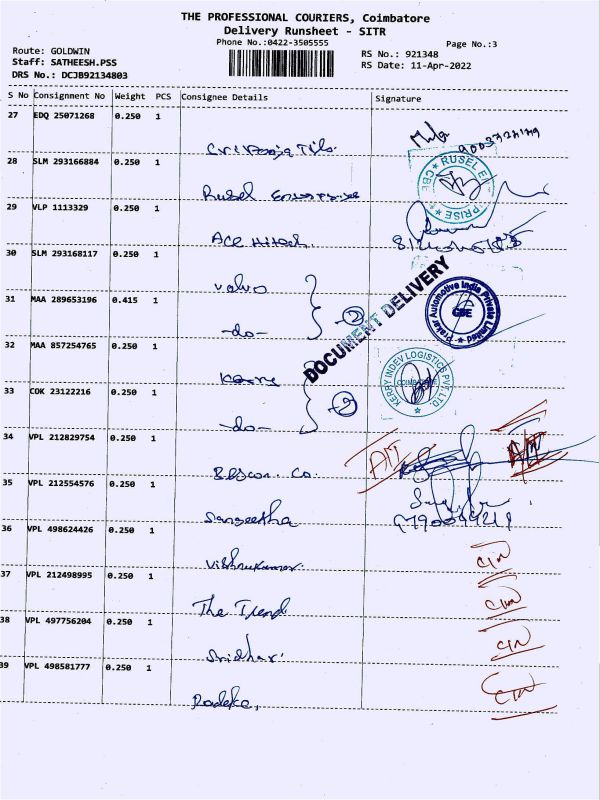 THE PROFESSIONAL COURIERS, Coimbatore
Delivery Runsheet - SITR
Phone No.:0422-3505555
Page No.:3
Route: GOLDWIN
Staff: SATHEESH.PSS
DRS No.: DCJB92134803
RS No.: 921348
RS Date: 11-Apr-2022
S No Consignment No Weight PCS Consignee Details Signature
27 EDQ 25071268 0.250 1
28 SLM 293166884 0.250 1
Rusel Enterprise
RUSEL ENTERPRISE CBE
29 VLP 1113329 0.250 1
ACE Hitech
30 SLM 293168117 0.250 1
Volvo
DOCUMENT DELIVERY
31 MAA 289653196 0.415 1
-do- 2
Prakar Automotive India Private Limited
CBE
32 MAA 857254765 0.250 1
Kerry
KERRY INDEV LOGISTICS PVT. LTD.
COIMBATORE
33 COK 23122216 0.250 1
-do- 2
34 VPL 212829754 0.250 1
Co.
35 VPL 212554576 0.250 1
Sangeetha
36 VPL 498624426 0.250 1
Vishnukumar
37 VPL 212498995 0.250 1
The Trend
38 VPL 497756204 0.250 1
Sridhar
39 VPL 498581777 0.250 1
Radeka,